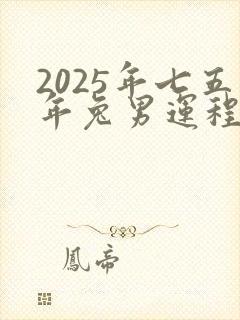 2025年七五
年兔男運程
鳳帝